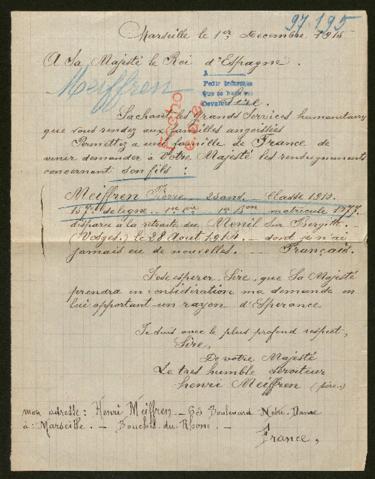 97.195
Marseille le 1er Decembre 1915
A Sa Majesté le Roi d'Espagne.
Meiffren
A
Pedir Informes
Sire
Sachant les grands Services humanitaires
que vous rendez aux familles angoissées
Permettez a une famille de France de
venir demander à Votre Majesté des renseignements
concernant son fils:
Meiffren Pierre Classe 1913.
157e de ligne 1ere Cie matricule
disparu à la retraite du Menil Sur Belvitte
(Vosges) le 28 Aout 1914 dont je n'ai
jamais eu de nouvelles. Français.
J'ose esperer, Sire, que Sa Majesté
prendra en considération ma demande en
lui apportant un rayon d'Esperance
Je suis avec le plus profond respect,
Sire,
De votre Majesté
Le tres humble serviteur
Henri Meiffren (père)
mon adresse: Henri Meiffren - 63 Boulevard Notre-Dame
à Marseille - Bouches-du-Rhone -
France,